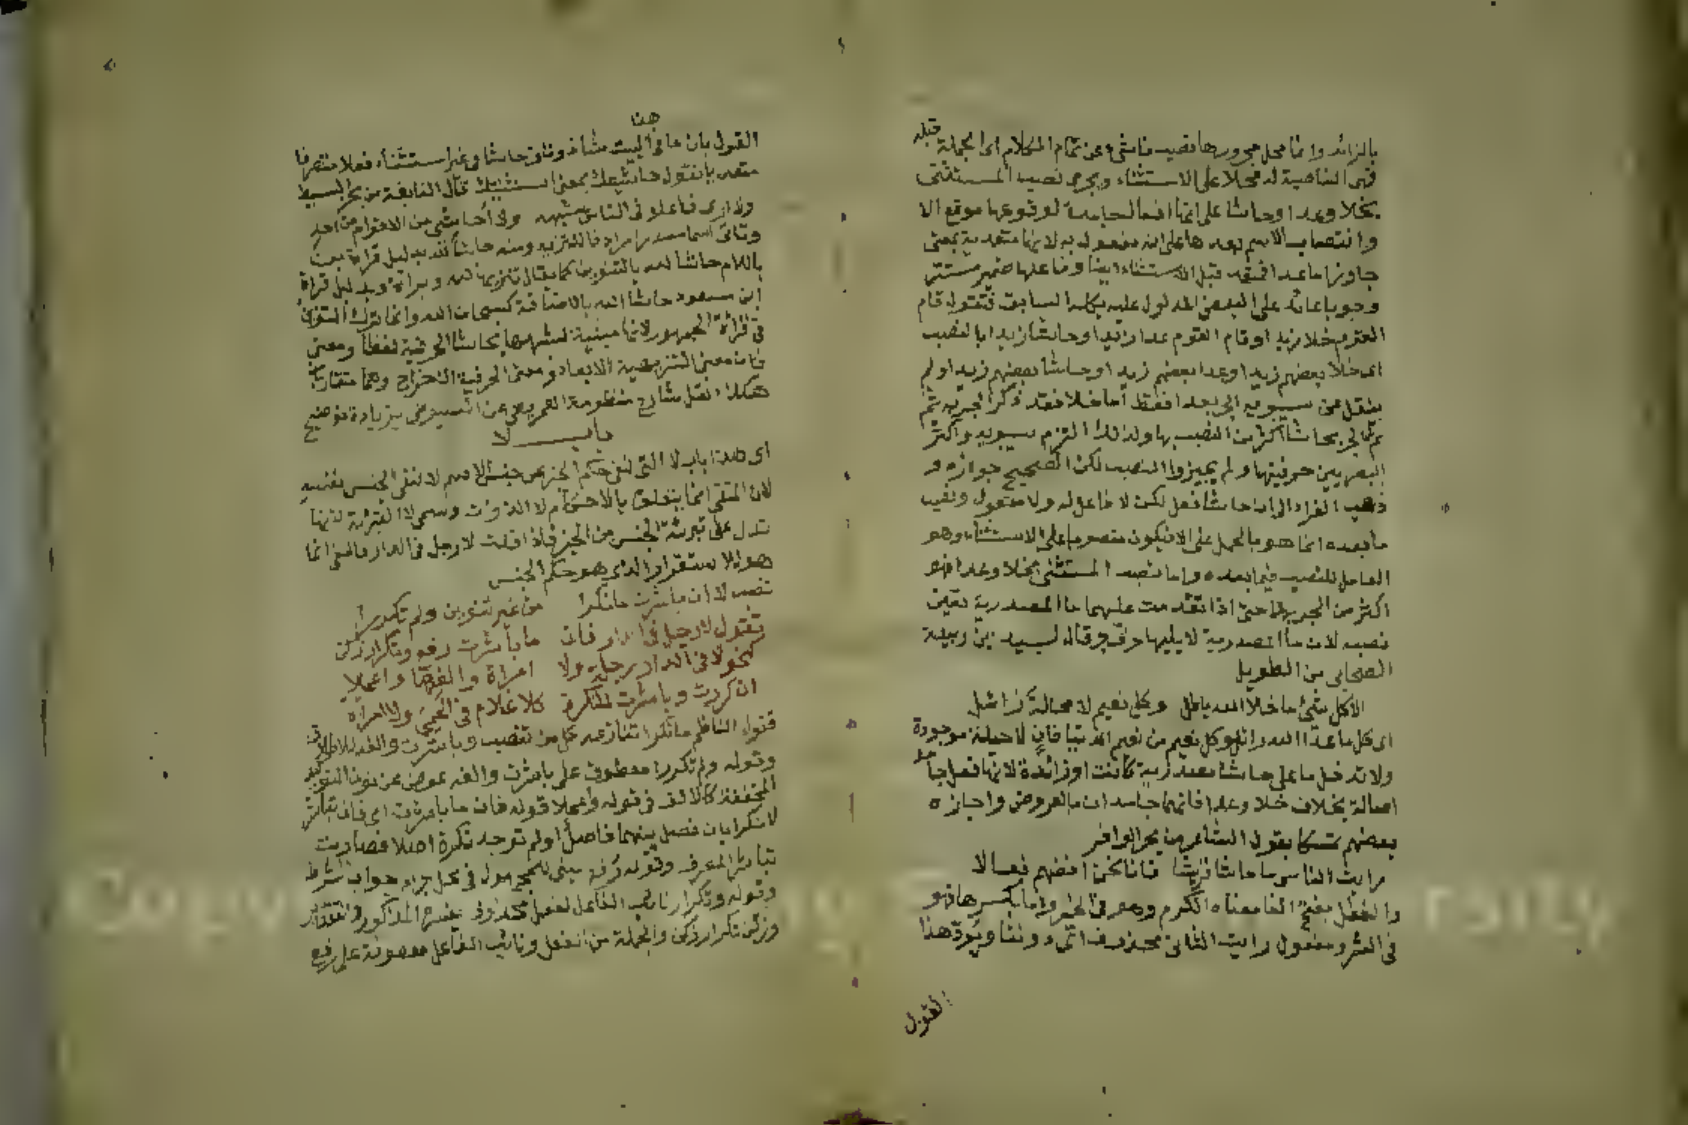 بالزائد وانما محل مجرورها نصب ناشئ عن تمام الكلام اى الجملة قبله
فهى الناصبة له محلا على الاستثناء ويجرى نصب المستثنى
بخلا وعدا وحاشا على انها افعال جامدة لوقوعها موقع الا
وانتصاب الاسم بعدها على انه مفعول به لانها متعدية بمعنى
جاوز اما عدا فتعد قبل الاستثناء ايضا وفاعلها ضمير مستتر
وجوبا عائد على البعض المدلول عليه بكله السابق فتقول قام
القوم خلا زيدا وقام القوم عدا زيدا وحاشا زيدا بالنصب
اى خلا بعضهم زيدا وعدا بعضهم زيدا وحاشا بعضهم زيدا ولم
ينقل عن سيبويه الجر بعدا فقط اما خلا فقد ذكر الجر به ثم
الجر بحاشا اكثر من النصب بها ولذلك التزم سيبويه واكثر
البصريين حرفيتها ولم يجيزوا النصب لكن الصحيح جوازه و
ذهب الفراء الى ان حاشا فعل لكن لا فاعل له ولا مفعول ونصب
ما بعده انما هو بالحمل على الا فيكون منصوبا على الاستثناء وهو
العامل للنصب فيما بعده واما نصب المستثنى بخلا وعدا فهو
اكثر من الجر بهما حتى اذا تقدمت عليهما ما المصدرية تعين
نصبه لان ما المصدرية لا يليها حرف جر وقال لبيد بن ربيعة
الصحابى من الطويل
الا كل شئ ما خلا الله باطل وكل نعيم لا محالة زائل
اى كل ما عدا الله زائل وكل نعيم من نعيم الدنيا فان لا حيلة موجودة
ولا تدخل ما على حاشا مصدرية كانت او زائدة لانها فعل جامد
اصالة بخلاف خلا وعدا فانهما جامدان بالعروض واجازه
بعضهم تمسكا بقول الشاعر من بحر الوافر
رايت الناس ما حاشا قريشا فانا نحن افضلهم فعالا
والفعل بفتح الفا معناه الكرم وهو فى الخير واما بكسرها فهو
فى الشر ومفعول رايت الثانى محذوف اى دوننا ويؤيد هذا
القول
هذا
القول بان ما فى البيت شاذ وتاتى حاشا فى غير استثناء فعلا متصرفا
متعديا تقول حاشيتك بمعنى استثنيتك قال النابغة من بحر البسيط
ولا ارى فاعلا فى الناس يشبهه ولا احاشى من الاقوام من احد
وتاتى اسما مصدرا مرادفا للتنزيه ومنه حاشا لله بدليل قراءة بعض
باللام حاشا لله بالتنوين كما يقال تنزيها لله وبراءة وبدليل قراءة
ابن مسعود حاشا الله بالاضافة كسبحان الله وانما ترك التنوين
فى قراءة الجمهور لانها مبنية لشبهها بحاشا الحرفية لفظا ومعنى
فان معنى التنزيهية الابعاد ومعنى الحرفية الاخراج وهما متقاربان
هكذا نقل شارح منظومة العمريطى عن السيوطى بزيادة توضيح
باب لا
اى هذا باب لا التى لنفى حكم الخبر عن جنس الاسم لا لنفى الجنس نفسه
لان النفى انما يتعلق بالاحكام لا الذوات وسمى لا التبرئة لانها
تدل على تبرئة الجنس من الخبر فاذا قلت لا رجل فى الدار فالمنفى انما
هو الاستقرار الذى هو حكم الجنس
تنصب لا ان باشرت منكرا من غير تنوين ولم تكررا
تقول لا رجل فى الدار فان ما باشرت رفع وتكرار زكن
كنحو لا فى الدار رجل ولا امراة والغها واعملا
ان كررت وباشرت للنكرة كلا غلام فى الحمى ولا امراة
قول الناظم منكرا تنازعه كل من تنصب وباشرت والفه للاطلاق
وقوله ولم تكررا معطوف على باشرت والفه عوض عن نون التوكيد
المخففة كالالف فى قوله واعملا قوله فان ما باشرت اى فان لم تباشر
لا نكرا بان فصل بينهما فاصل او لم توجد نكرة اصلا فصادرت
تباشر المعرف وقوله رفع مبنى للمجهول فى محل جزم جواب الشرط
وقوله وتكرار نائب الفاعل لفعل محذوف يفسره المذكور والتقدير
وزكن تكرار زكن والجملة من الفعل ونائب الفاعل معطوفة على رفع